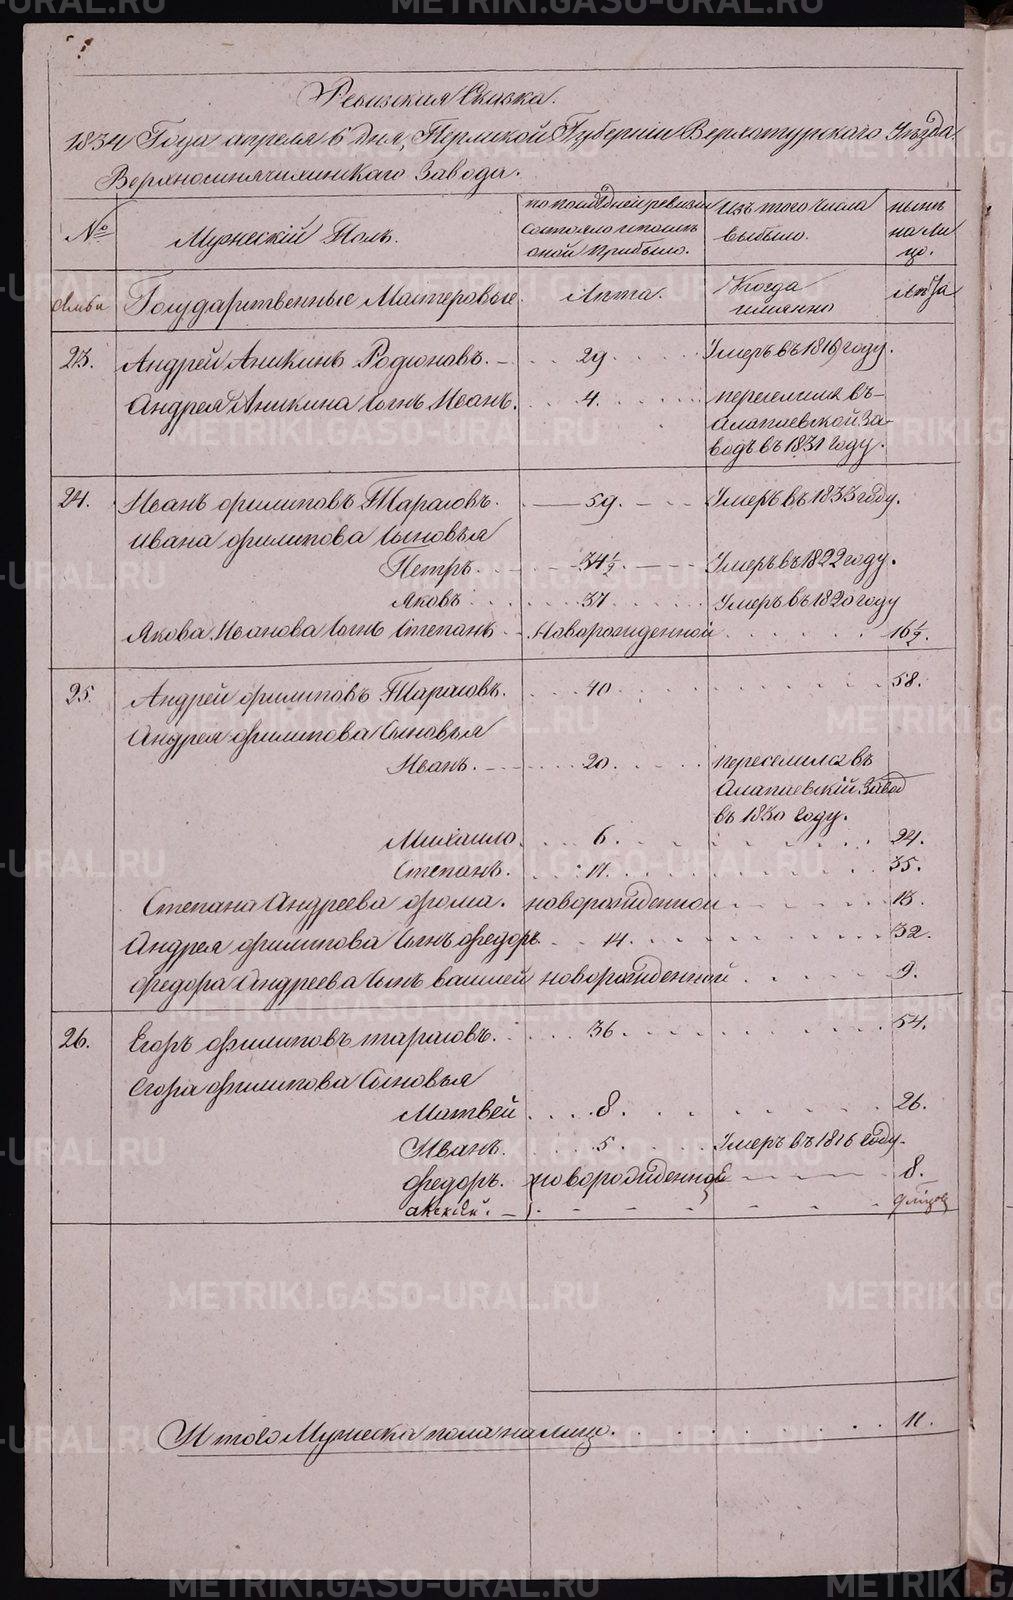 Ревизская Сказка.
1834 Года апреля 6 дня, Пермской Губернии Верхотурскаго Уезда
Верхнесинячихинскаго Завода.
№
Мужескій Полъ.
по последней ревизіи состояло и после оной прибыло.
Изъ того числа выбыло.
ныне на лицо.
Семьи
Государственные Мастеровые.
Лета.
Когда имянно
лета
23. Андрей Аникинъ Родіоновъ. 29. Умеръ въ 1816 году.
Андрея Аникина Сынъ Иванъ. 4. переселился въ
Алапаевской За-
водъ въ 1831 году.
24. Иванъ Филиповъ Тарасовъ. 59. Умеръ въ 1833 году.
Ивана Филипова Сыновья
Петръ. 34 1/2. Умеръ въ 1822 году.
Яковъ 37 Умеръ въ 1820 году
Якова Иванова Сынъ Степанъ Новорожденной 16 1/2.
25. Андрей Филиповъ Тарасовъ. 40 58.
Андрея Филипова Сыновья
Иванъ. 20. переселился въ
Алапаевскій Завод
въ 1830 Году.
Михаило 6. 24.
Степанъ. 17. 35.
Степана Андреева Фома. новорожденной 13.
Андрея Филипова Сынъ Федоръ 14. 32.
Федора Андреева Сынъ Василей новорожденной 9.
26. Егоръ Филиповъ Тарасовъ. 36. 54.
Егора Филипова Сыновья
Матвей 8. 26.
Иванъ. 5. Умеръ въ 1816 Году.
Федоръ. новорожденной 8.
Алексей.
Итого Мужеска пола налицо. 11.
METRIKI.GASO-URAL.RU